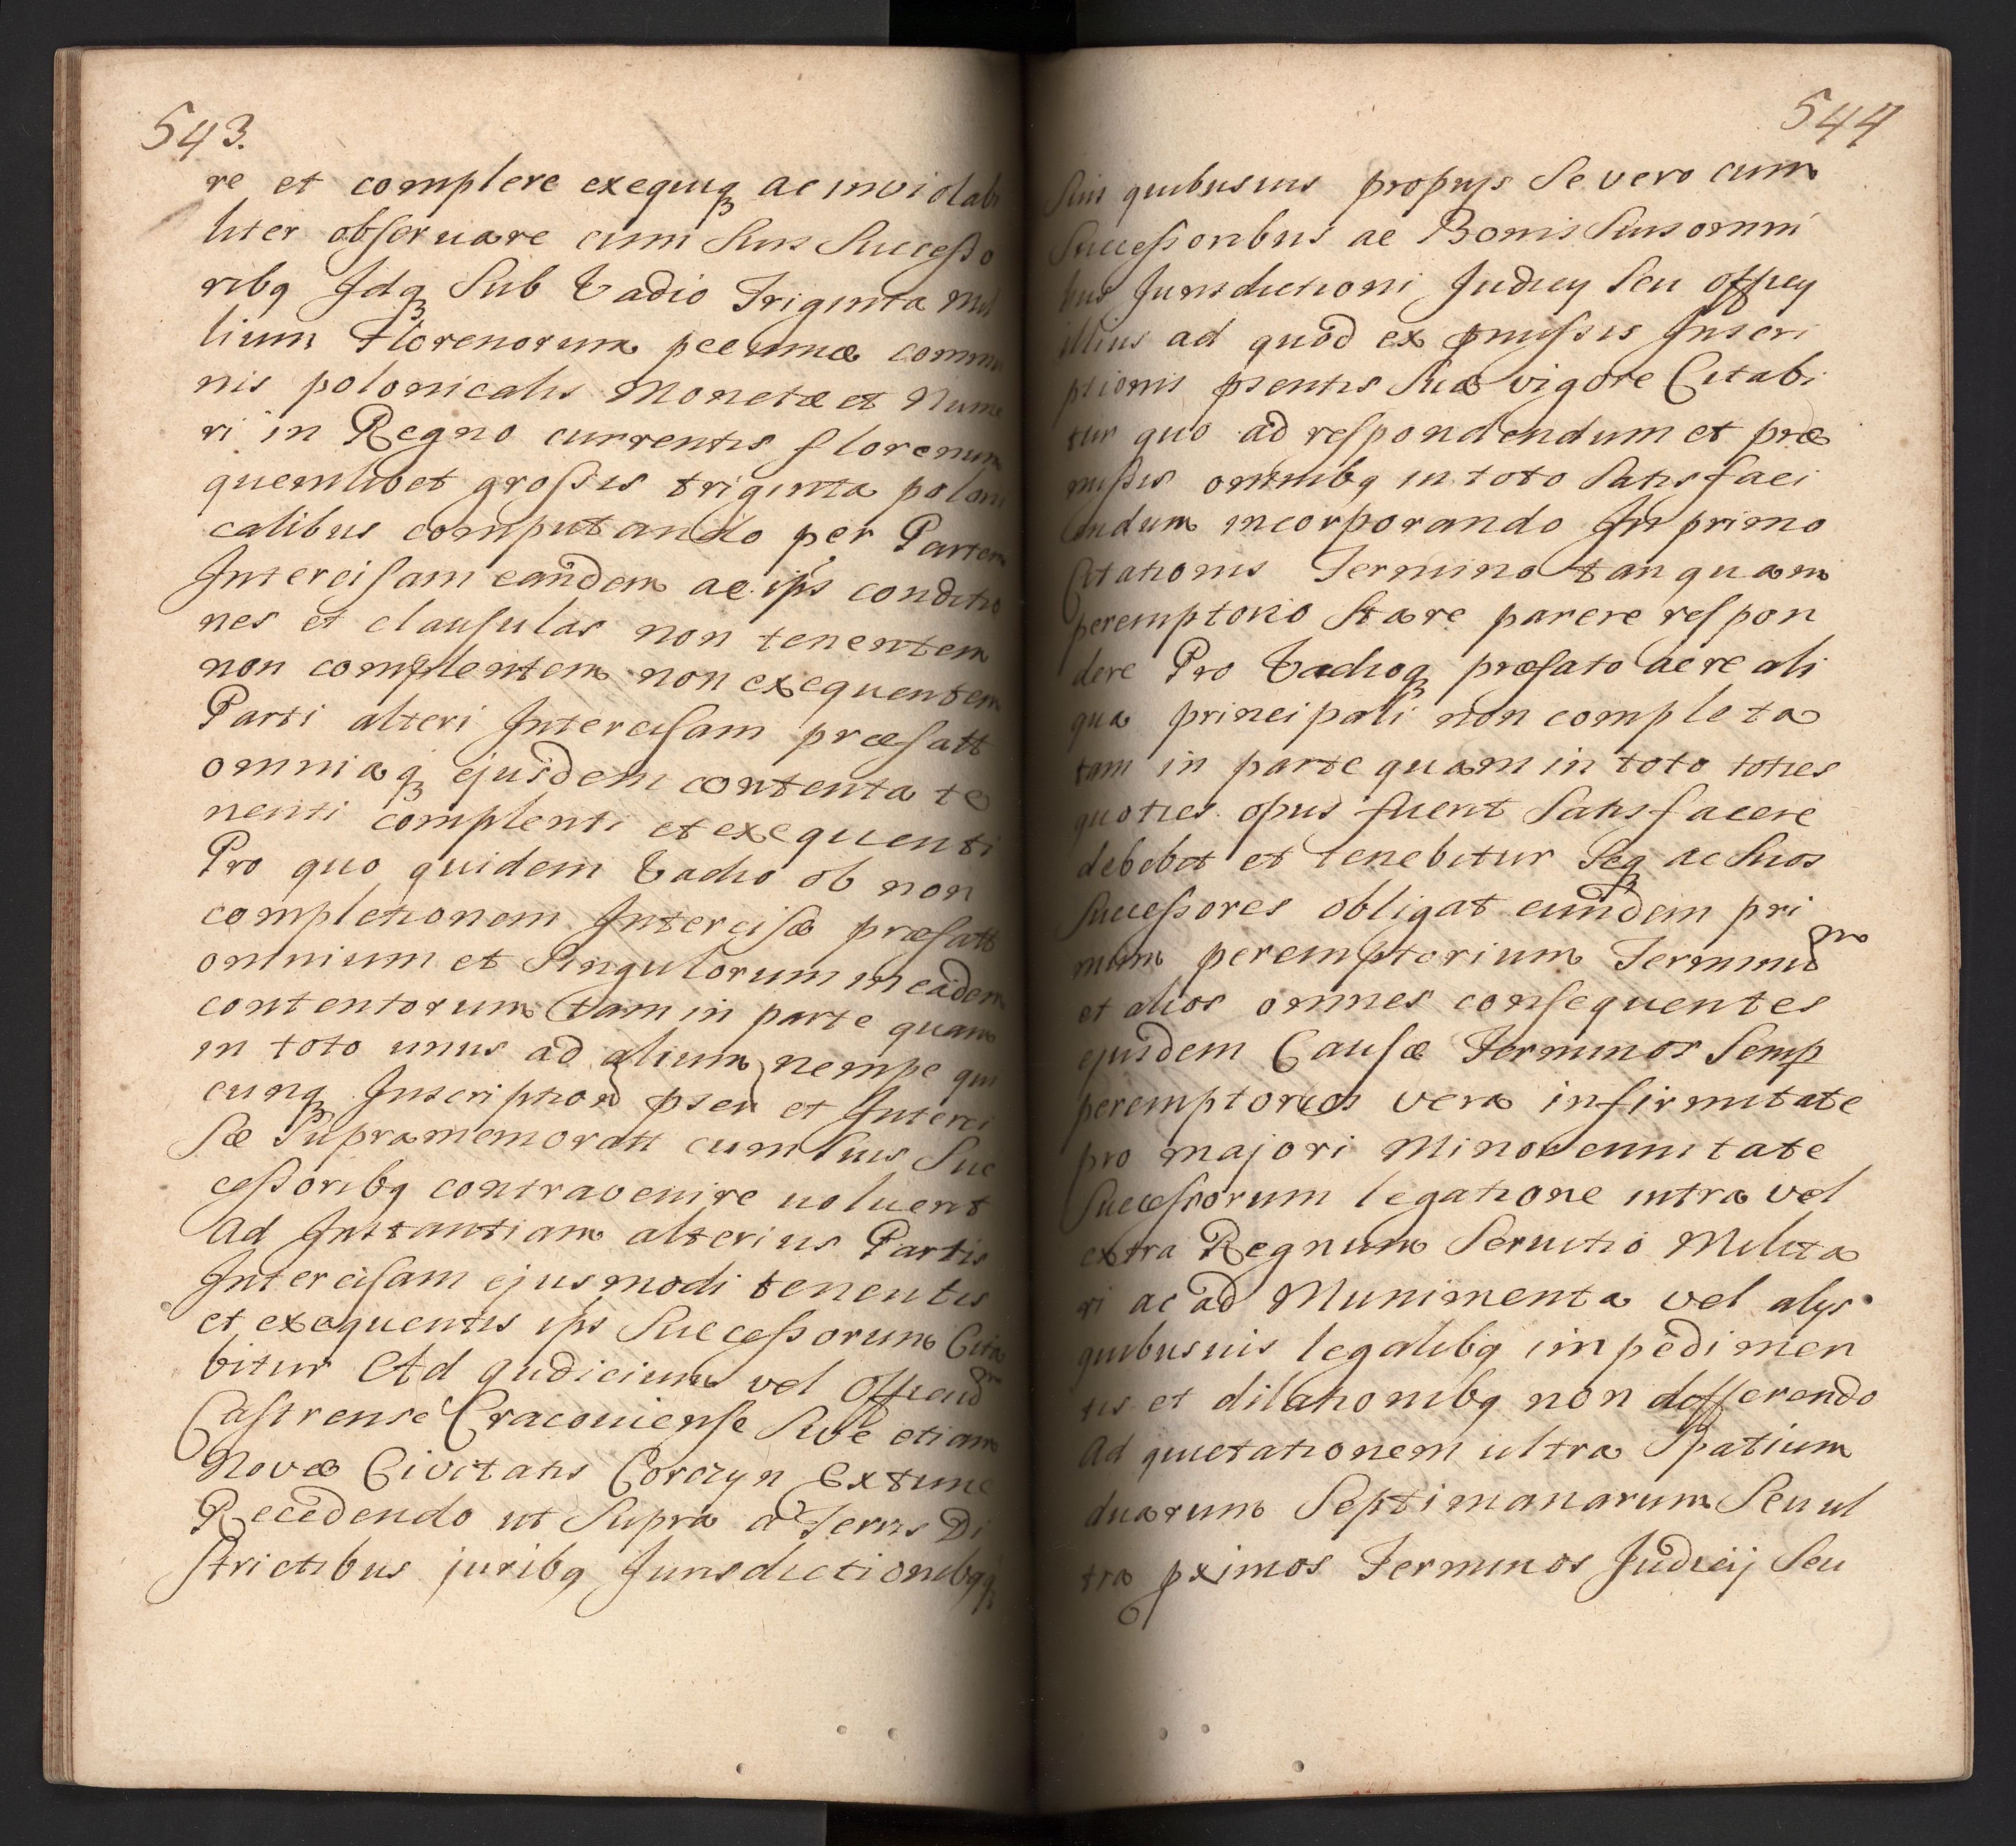 543.
re et complere exequiq ac inviolabi
liter obseruare cum Suis Successo
ribq Idq Sub Vadio Triginta Mil
lium Florenorum pecuniæ commu
nis polonicalis Monetæ et Nume
ri in Regno currentis florenum
quemlibet grossis triginta poloni
calibus computando per Partem
Intercisam eandem ac ips conditio
nes et clausulas non tenentem
non complentem non exequentem
Parti alteri Intercisam præfatt
omniaq ejusdem contenta te
nenti complenti et exequenti
Pro quo quidem Vadio ob non
completionem Intercisæ præfatt
omnium et Singulorum in eadem
contentorum tam in parte quam
in toto unus ad alium nempe qui
cunq Inscription psen et Interci
sæ Supramemoratt cum Suis Suc
cessoribq contravenire uoluerit
ad Instantiam alterius Partis
Intercisam ejusmodi tenentis
et exequentis ips Successorum Cita
bitur Ad Judicium vel Officiu͞m
Castrense Cracouiense Sive etiam
Novæ Civitatis Corczyn Extunc
Recedendo ut Supra a Terris Di
strictibus juribq Jurisdictionibqq
544
Suis quibusuis proprijs Se vero cum
Successoribus ac Bonis Suis omni
bus Jurisdictioni Judicij Seu officij
illius ad quod ex pmissis Inscri
ptionis psentis Suæ vigore Citabi
tur quo ad respondendum et præ
missis omnibq in toto Satisfaci
endum incorporando In primo
Citationis Termino tanquam
peremptorio Stare parere respon
dere Pro Vadioq præfato ac re ali
qua principali non completa
tam in parte quam in toto toties
quoties opus fuerit Satisfacere
debebit et tenebitur Seq ac Suos
Successores obligat eundem pri
mum peremptorium Terminu͞m
et alios omnes consequentes
ejusdem Causæ Terminos Semp
peremptorios vera infirmitate
pro majori Minorennitate
Successorum legatione intra vel
extra Regnum Seruitio Milita
ri ac ad Munimenta vel alijs
quibusuis legalibq impedimen
tis et dilationibq non differendo
Ad quietationem ultra Spatium
duarum Septimanarum Seu ul
tra pximos Terminos Judicij Seu